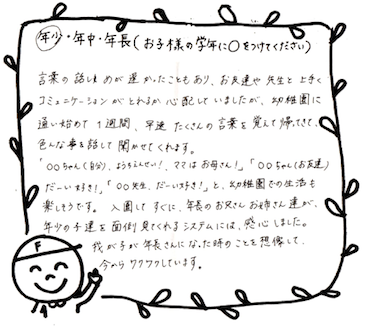 年少・年中・年長(お子様の学年に○をつけてください)
言葉の話し始めが遅かったこともあり、お友達や先生と上手く
コミュニケーションがとれるか心配していましたが、幼稚園に
通い始めて1週間、早速たくさんの言葉を覚えて帰ってきて、
色んな事を話して聞かせてくれます。
「○○ちゃん(自分)、ようちえんせい!、ママはお母さん!」「○○ちゃん(お友達)
だーい好き!」「○○先生、だーい好き!」と、幼稚園での生活も
楽しそうです。入園してすぐに、年長のお兄さんお姉さん達が、
年少の子達を面倒見てくれるシステムには、感心しました。
我が子が年長さんになった時のことを想像して、
今からワクワクしています。
F